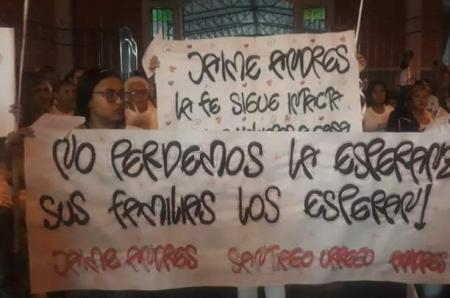 JAIME ANDRES
LA FE SIGUE INTACTA
A CASA
NO PERDEMOS LA ESPERANZ
SUS FAMILIAS LOS ESPERAN!
JAIME ANDRES SANTIAGO ANDRES